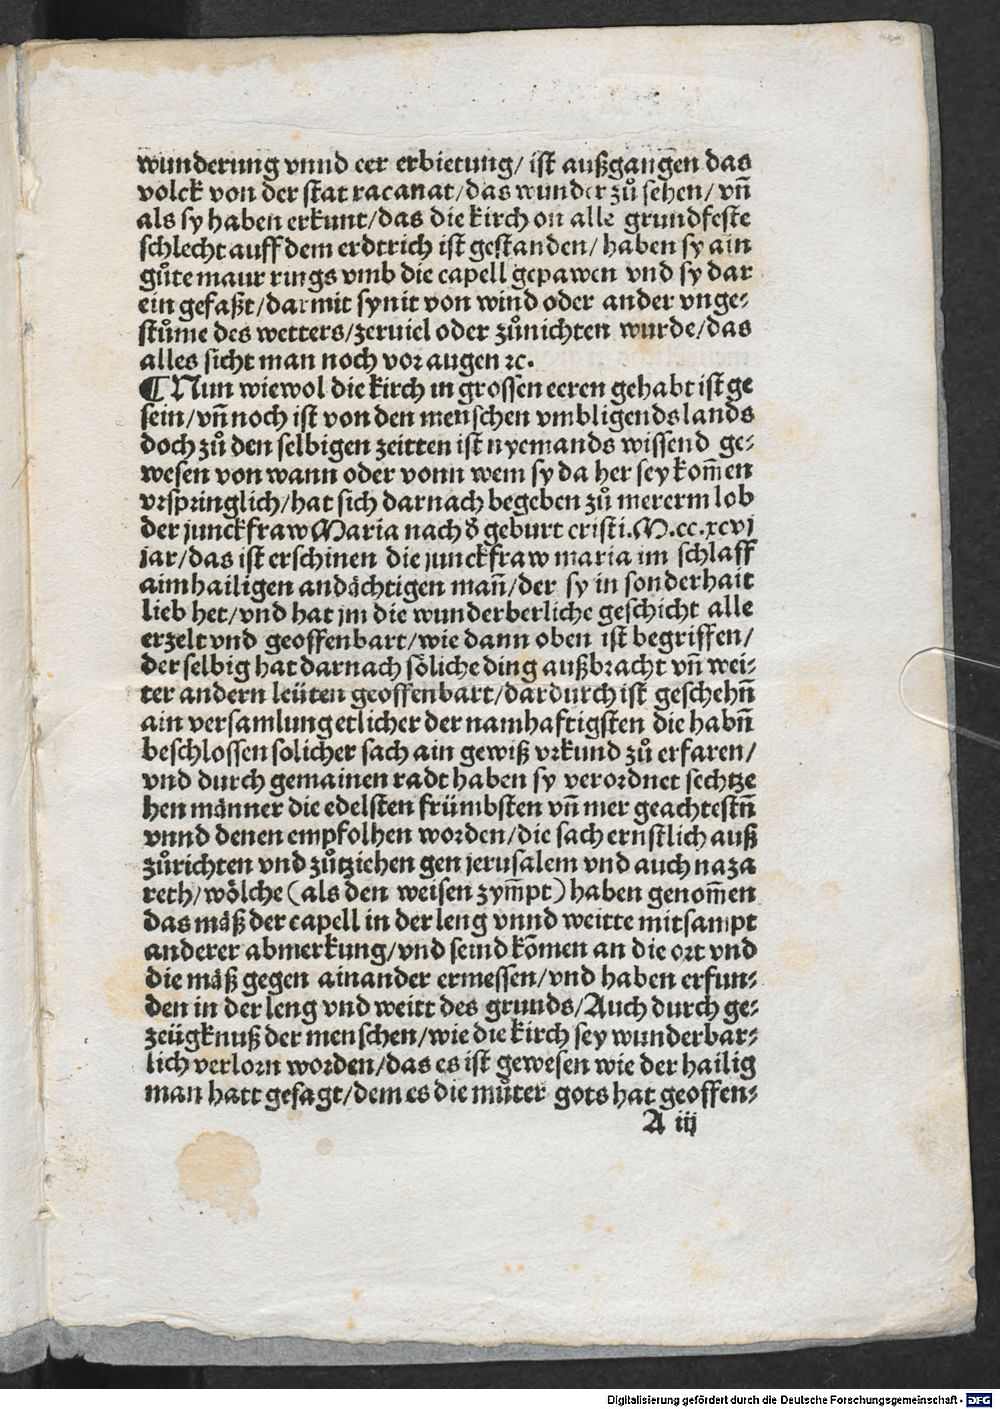 wunderung vnnd eer erbietung/ ist außgangen das
volck von der stat racanat/das wunder zů sehen/ vñ
als sy haben erkunt/das die kirch on alle grundfeste
schlecht auff dem erdtrich ist gestanden/ haben sy ain
gůte maur rings vmb die capell gepawen vnd sy dar
ein gefaßt/darmit sy nit von wind oder ander vnge⸗
stůme des wetters/zeruiel oder zůnichten wurde/das
alles sicht man noch vor augen ⁊c.
¶ Nun wiewol die kirch in grossen eeren gehabt ist ge
sein/vñ noch ist von den menschen vmbligends lands
doch zů den selbigen zeitten ist nyemands wissend ge⸗
wesen von wann oder vonn wem sy da her sey kom̄en
vrspringlich/hat sich darnach begeben zů mererm lob
der junckfraw Maria nach ð geburt cristi.M.cc.xcvj
jar/das ist erschinen die junckfraw maria im schlaff
aim hailigen andächtigen mañ/der sy in sonderhait
lieb het/vnd hat jm die wunderberliche geschicht alle
erzelt vnd geoffenbart/wie dann oben ist begriffen/
der selbig hat darnach söliche ding außbracht vñ wei⸗
ter andern leüten geoffenbart/dardurch ist geschehñ
ain versamlung etlicher der namhaftigsten die habñ
beschlossen solicher sach ain gewiß vrkund zů erfaren/
vnd durch gemainen radt haben sy verordnet sechtze
hen männer die edelsten frümbsten vñ mer geachtestñ
vnnd denen empfolhen worden/die sach ernstlich auß
zůrichten vnd zůtziehen gen jerusalem vnd auch naza
reth/wölche (als den weisen zym̄pt) haben genom̄en
das mäß der capell in der leng vnnd weitte mitsampt
anderer abmerkung/vnd seind kōmen an die ort vnd
die mäß gegen ainander ermessen/vnd haben erfun⸗
den in der leng vnd weitt des grunds/Auch durch ge⸗
zeügknuß der menschen/wie die kirch sey wunderbar⸗
lich verlorn worden/das es ist gewesen wie der hailig
man hatt gesagt/dem es die můter gots hat geoffen⸗
A iij
Digitalisierung gefördert durch die Deutsche Forschungsgemeinschaft - DFG